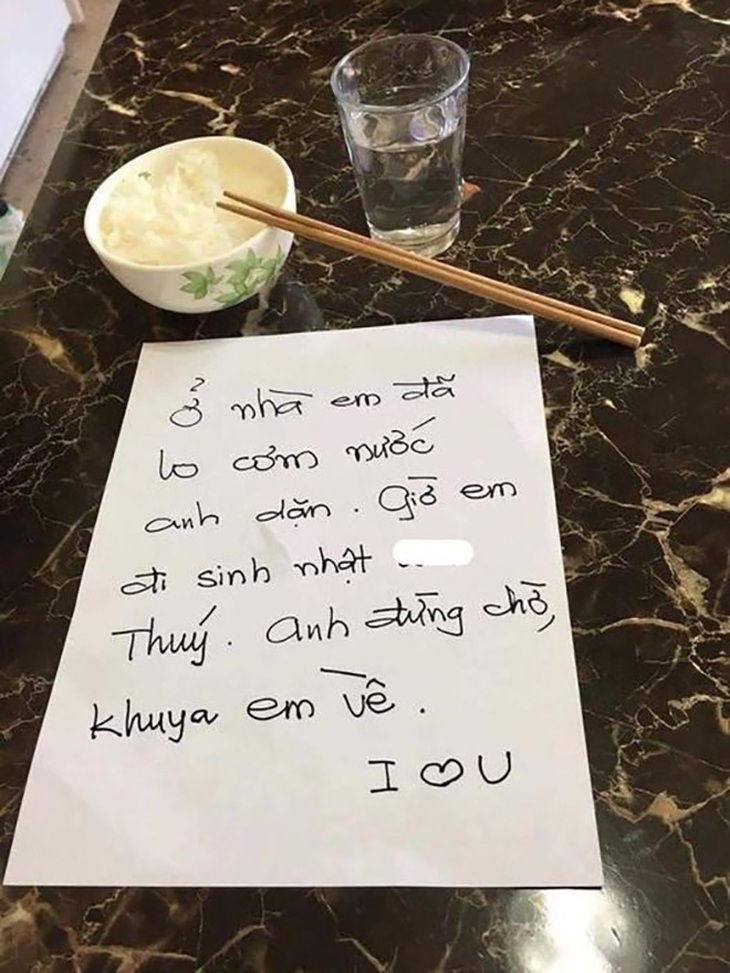 Ở nhà em đã
lo cơm nước
anh dặn. Giờ em
đi sinh nhật
Thuý. Anh đừng chờ,
khuya em về.
I ♡ U